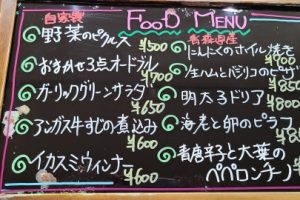 FOOD MENU
自家製
野菜のピクルス
¥500
おまかせ3点オードブル
¥700
ガーリックグリーンサラダ
¥650
アンガス牛すじの煮込み
¥600
イカスミウィンナー
¥600
青森県産
にんにくのホイル焼き
¥900
生ハムとバジリコのピザ
明太子ドリア
¥800
海老と卵のピラフ
青唐辛子と大葉の
ペペロンチーノ